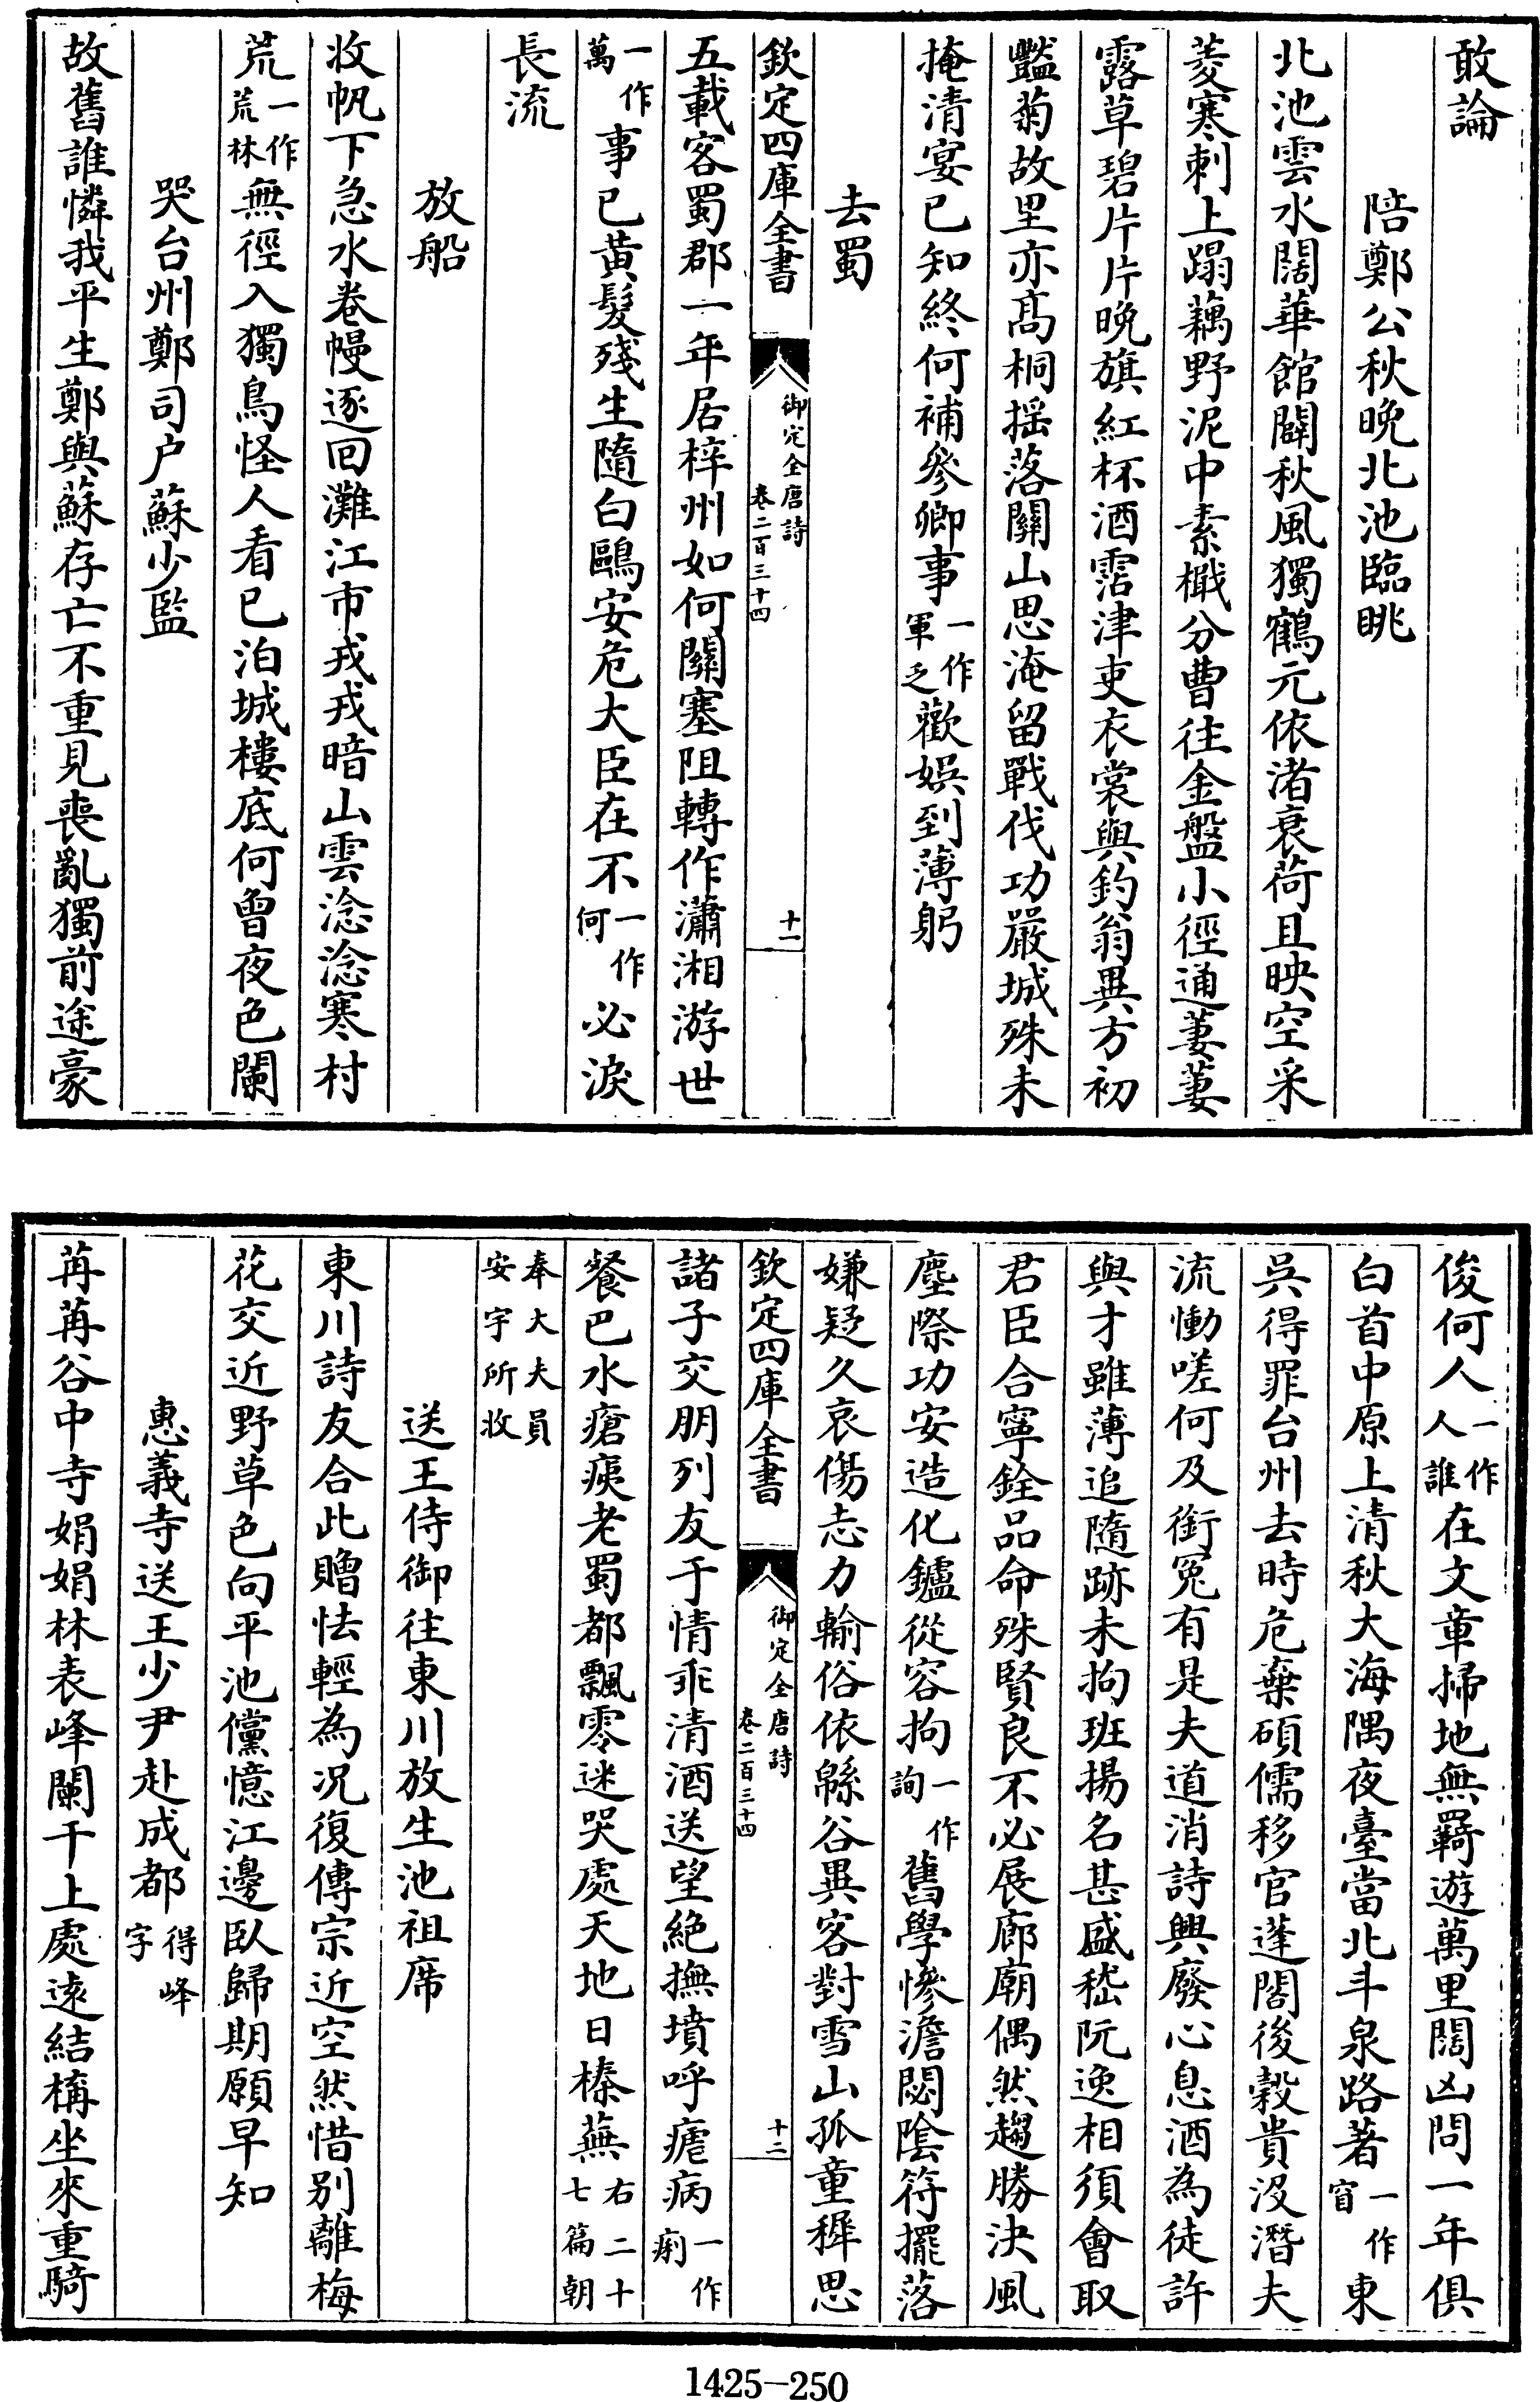 敢論
陪鄭公秋晚北池臨眺
北池雲水闊華館闢秋風獨鶴元依渚衰荷且映空采
菱寒刺上蹋藕野泥中素檝分曹往金盤小徑通萋萋
露草碧片片晚旗紅杯酒霑津吏衣裳與釣翁異方初
豔菊故里亦高桐搖落關山思淹留戰伐功嚴城殊未
掩清宴已知終何補參卿事一作軍乏歡娛到薄躬
去蜀
欽定四庫全書
御定全唐詩
卷二百三十四
十一
五載客蜀郡一年居梓州如何關塞阻轉作瀟湘游世
一作萬事已黃髮殘生隨白鷗安危大臣在不一作何必淚
長流
放船
收帆下急水卷幔逐回灘江市戎戎暗山雲淰淰寒村
荒一作荒林無徑入獨鳥怪人看已泊城樓底何曾夜色闌
哭台州鄭司户蘇少監
故舊誰憐我平生鄭與蘇存亡不重見喪亂獨前途豪
俊何人一作人誰在文章掃地無羇遊萬里闊凶問一年俱
白首中原上清秋大海隅夜臺當北斗泉路著一作窅東
吳得罪台州去時危棄碩儒移官蓬閣後穀貴没潛夫
流慟嗟何及銜冤有是夫道消詩興廢心息酒為徒許
與才雖薄追隨跡未拘班揚名甚盛嵇阮逸相須會取
君臣合寧銓品命殊賢良不必展廊廟偶然趨勝決風
塵際功安造化鑪從容拘一作詢舊學慘澹閟陰符擺落
嫌疑久哀傷志力輸俗依緜谷異客對雪山孤童穉思
欽定四庫全書
御定全唐詩
卷二百三十四
十二
諸子交朋列友于情乖清酒送望絶撫墳呼瘧病一作痢
餐巴水瘡痍老蜀都飄零迷哭處天地日榛蕪右二十七篇朝
奉大夫員安宇所收
送王侍御往東川放生池祖席
東川詩友合此贈怯輕為况復傳宗近空然惜别離梅
花交近野草色向平池儻憶江邊臥歸期願早知
惠義寺送王少尹赴成都得峰字
苒苒谷中寺娟娟林表峰闌干上處逺結構坐來重騎
1425-250